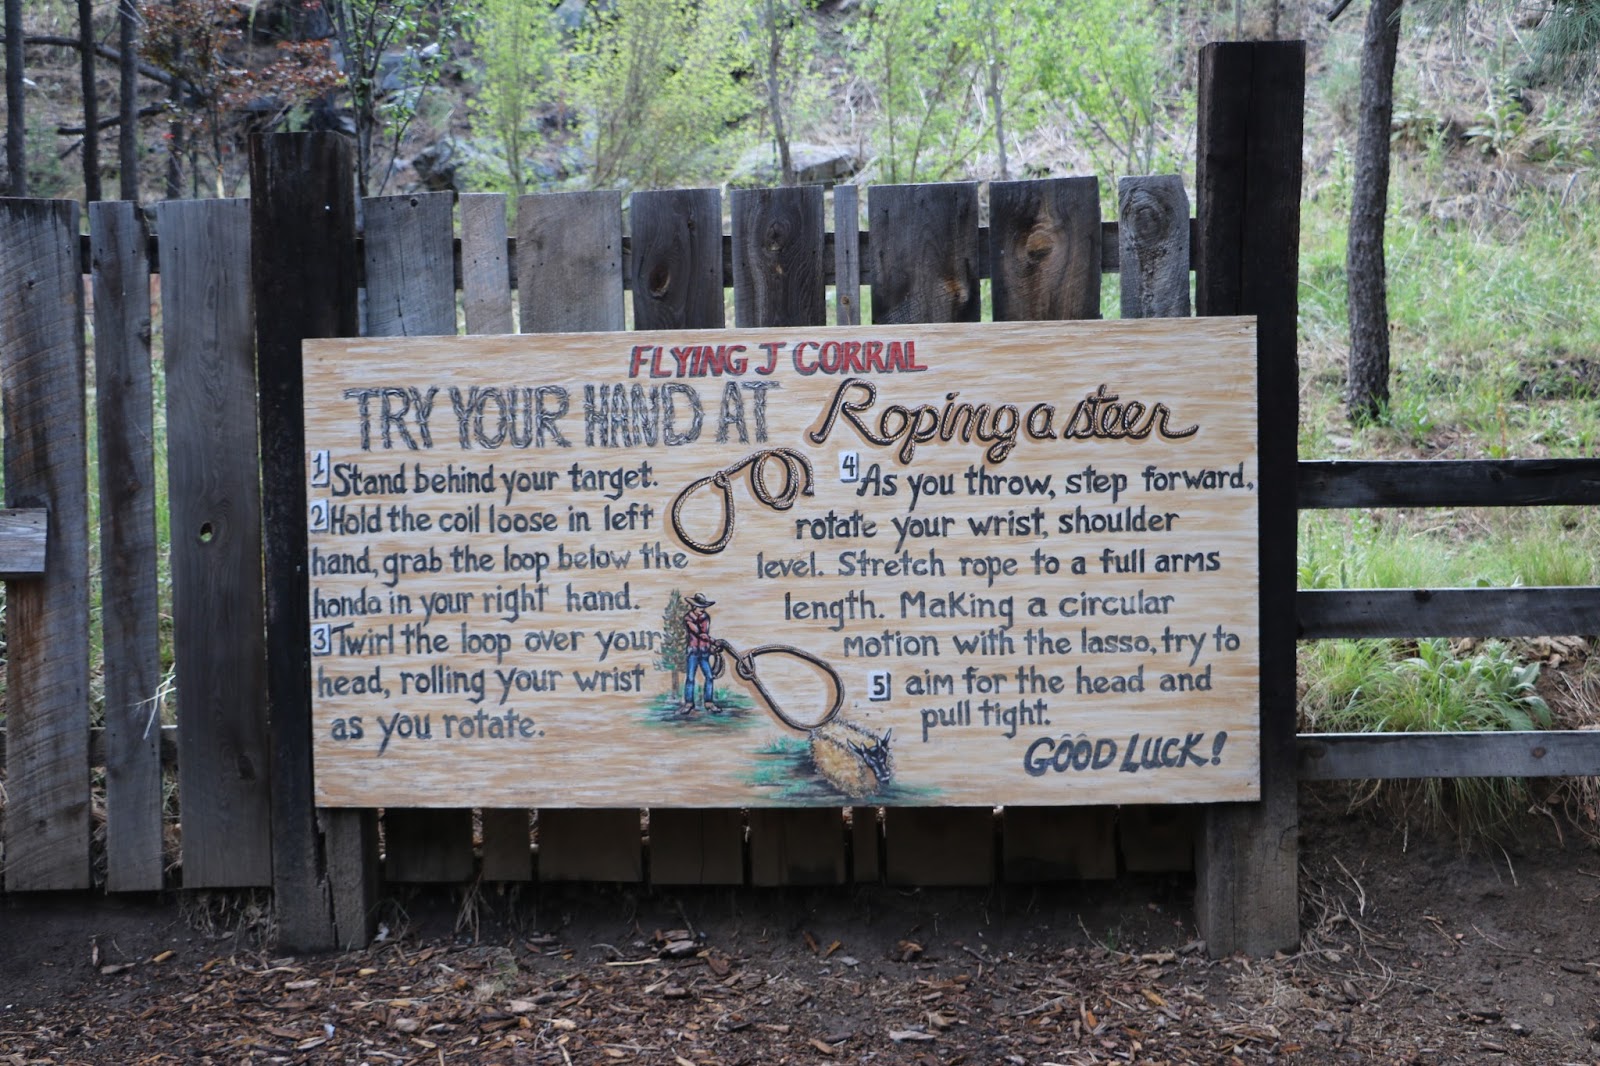 FLYING J CORRAL
TRY YOUR HAND AT Roping a steer
1 Stand behind your target.
2 Hold the coil loose in left
hand, grab the loop below the
honda in your right hand.
3 Twirl the loop over your
head, rolling your wrist
as you rotate.
4 As you throw, step forward,
rotate your wrist, shoulder
level. Stretch rope to a full arms
length. Making a circular
motion with the lasso, try to
5 aim for the head and
pull tight.
GOOD LUCK!